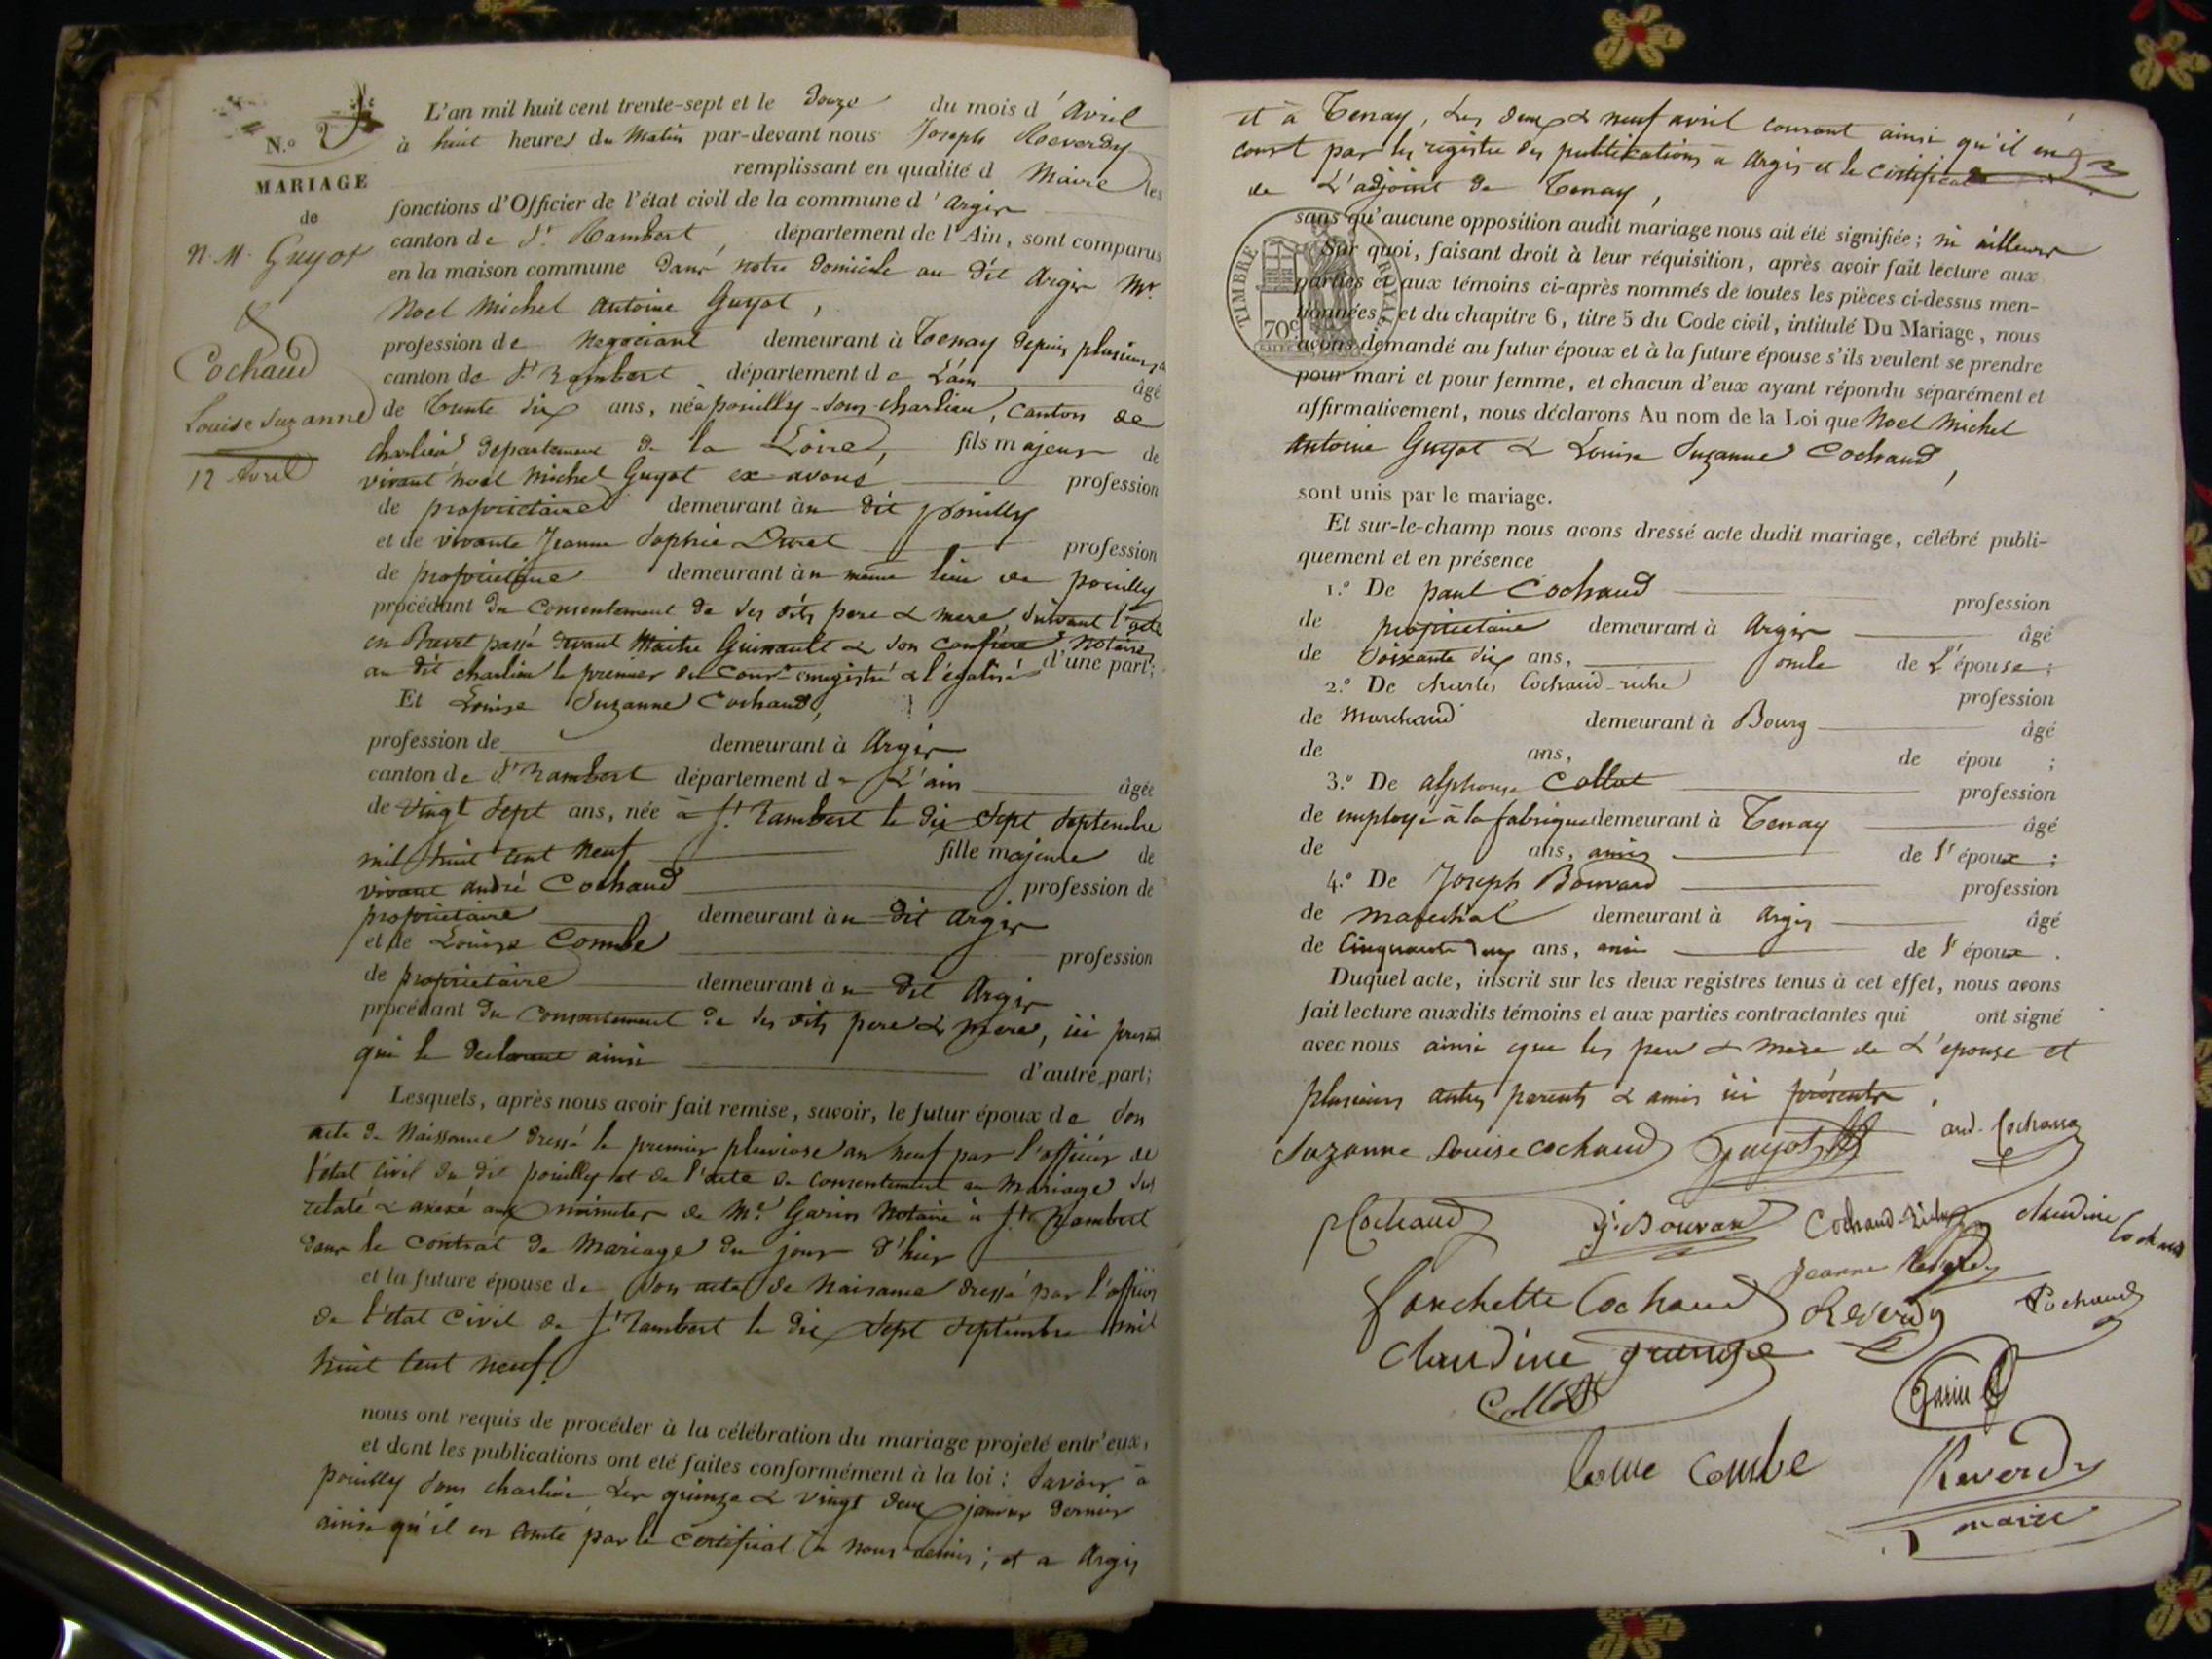 N.o 2
MARIAGE
de
N. M. Guyot
&
Cochaud
Louise Suzanne
12 Avril
L'an mil huit cent trente-sept et le douze du mois d'avril
à huit heures du matin par-devant nous Joseph Reverdy
remplissant en qualité d Maire les
fonctions d'Officier de l'état civil de la commune d'argis
canton de St. Rambert, département de l'Ain, sont comparus
en la maison commune dans notre domicile au dit Argis Mr.
Noel Michel Antoine Guyot,
profession de Negociant demeurant à Tenay depuis plusieurs
canton de St Rambert département de L'ain âgé
de trente six ans, né à pouilly-sous-charlieu, canton de
charlieu departement de la Loire, fils majeur de
vivant noel Michel Guyot ex avoué profession
de propriétaire demeurant àu dit pouilly
et de vivante Jeanne Sophie Duret profession
de propriétaire demeurant àu même lieu de pouilly
procédant du consentement de ses dits pere & mere, suivant l'acte
en Brevet passé devant Maitre Guinault & son confrère Notaires
au dit charlieu le premier du cour enregistré & légalisé d'une part;
Et Louise Suzanne Cochaud,
profession de demeurant à Argis
canton de St Rambert département de L'ain âgée
de vingt sept ans, née à St. Rambert le dix sept septembre
mil huit cent neuf fille majeure de
vivant andré Cochaud profession de
propriétaire demeurant àu dit argis
et de Louise Combe profession
de propriétaire demeurant àu dit Argis
procédant du consentement de ses dits pere & mere, ici présent
qui le declarent ainsi d'autre part;
Lesquels, après nous avoir fait remise, savoir, le futur époux de son
acte de Naissance dressé le premier pluviose an neuf par l'officier de
l'état civil du dit pouilly et de l'acte de consentement au mariage sus
relaté & anexé aux minutes de Mr. Garin Notaire à St. Rambert
dans le contrat de Mariage du jour d'hier
et la future épouse de son acte de Naissance dressé par l'officier
de l'état civil de St. Rambert le dix sept septembre mil
huit cent neuf.
nous ont requis de procéder à la célébration du mariage projeté entr'eux,
et dont les publications ont été faites conformément à la loi: Savoir à
pouilly sous charlieu Les quinze & vingt deux janvier dernier
ainsi qu'il en conste par le certificat à nous remis; et a Argis
et à Tenay, Les deux & neuf avril courant ainsi qu'il en
const par les registre des publications à Argis et le certificat
de L'adjoint de Tenay,
sans qu'aucune opposition audit mariage nous ait été signifiée; ni ailleurs
Sur quoi, faisant droit à leur réquisition, après avoir fait lecture aux
parties et aux témoins ci-après nommés de toutes les pièces ci-dessus men-
tionnées, et du chapitre 6, titre 5 du Code civil, intitulé Du Mariage, nous
avons demandé au futur époux et à la future épouse s'ils veulent se prendre
pour mari et pour femme, et chacun d'eux ayant répondu séparément et
affirmativement, nous déclarons Au nom de la Loi que Noel Michel
Antoine Guyot & Louise Suzanne Cochaud,
sont unis par le mariage.
Et sur-le-champ nous avons dressé acte dudit mariage, célébré publi-
quement et en présence
1.o De paul Cochaud profession
de propriétaire demeurant à Argis âgé
de soixante six ans, oncle de L'épouse;
2.o De charles Cochaud-riche profession
de Marchand demeurant à Bourg âgé
de ans, de épou ;
3.o De alphonse Collot profession
de employé à la fabrique demeurant à Tenay âgé
de ans, amis de l'époux;
4.o De Joseph Bouvard profession
de marechal demeurant à argis âgé
de Cinquante deux ans, ami de l'époux.
Duquel acte, inscrit sur les deux registres tenus à cet effet, nous avons
fait lecture auxdits témoins et aux parties contractantes qui ont signé
avec nous ainsi que les pere & mere de L'epouse et
plusieurs autres parents & amis ici présents.
TIMBRE ROYAL
70c
Suzanne Louise cochaud Guyot and. Cochaud
PCochaud J. Bouvard Cochaud-Riche claudine Cochaud
fanchette Cochaud Jeanne Reverdy
Reverdy Cochaud
claudine grange
Collot Garin
louise Combe Reverdy
maire